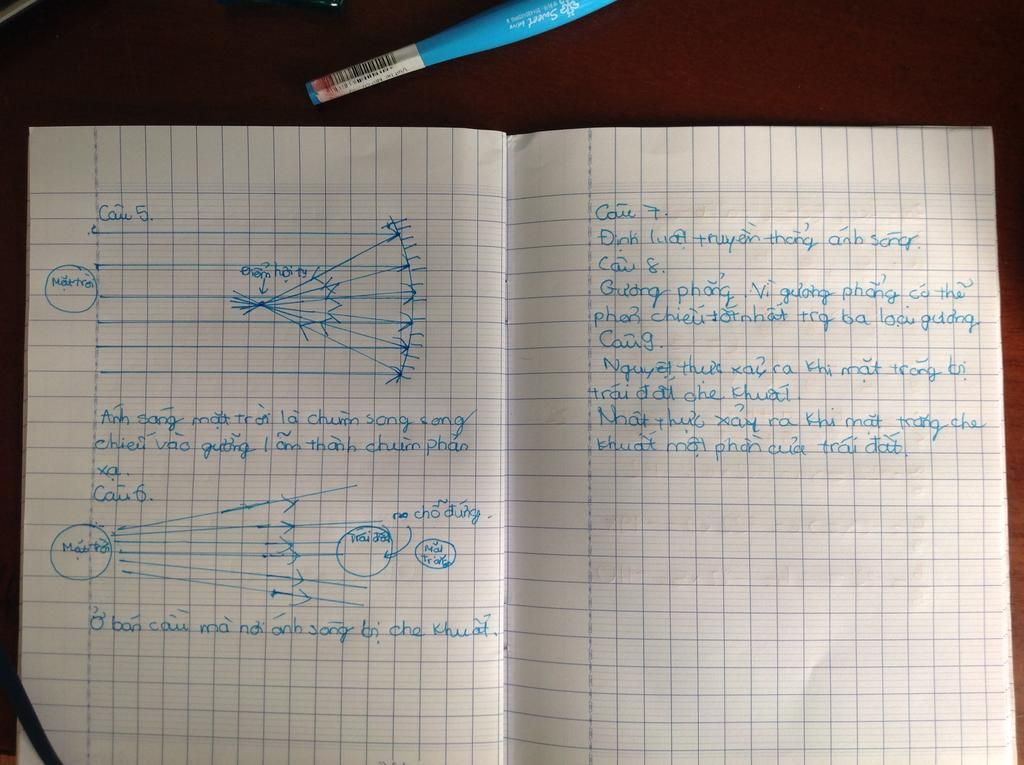 Câu 5.
Mặt trời
điểm hội tụ
Ánh sáng mặt trời là chùm song song
chiếu vào gương lõm thành chùm phản
xạ.
Câu 6.
Mặt trời
Trái đất
chỗ đứng.
Mặt
trăng
Ở bán cầu mà nơi ánh sáng bị che khuất.
Câu 7.
Định luật truyền thẳng ánh sáng.
Câu 8.
Gương phẳng. Vì gương phẳng có thể
phản chiếu tốt nhất trg ba loại gương
Câu 9.
Nguyệt thực xảy ra khi mặt trăng bị
trái đất che khuất.
Nhật thực xảy ra khi mặt trăng che
khuất một phần của trái đất.
Sweet